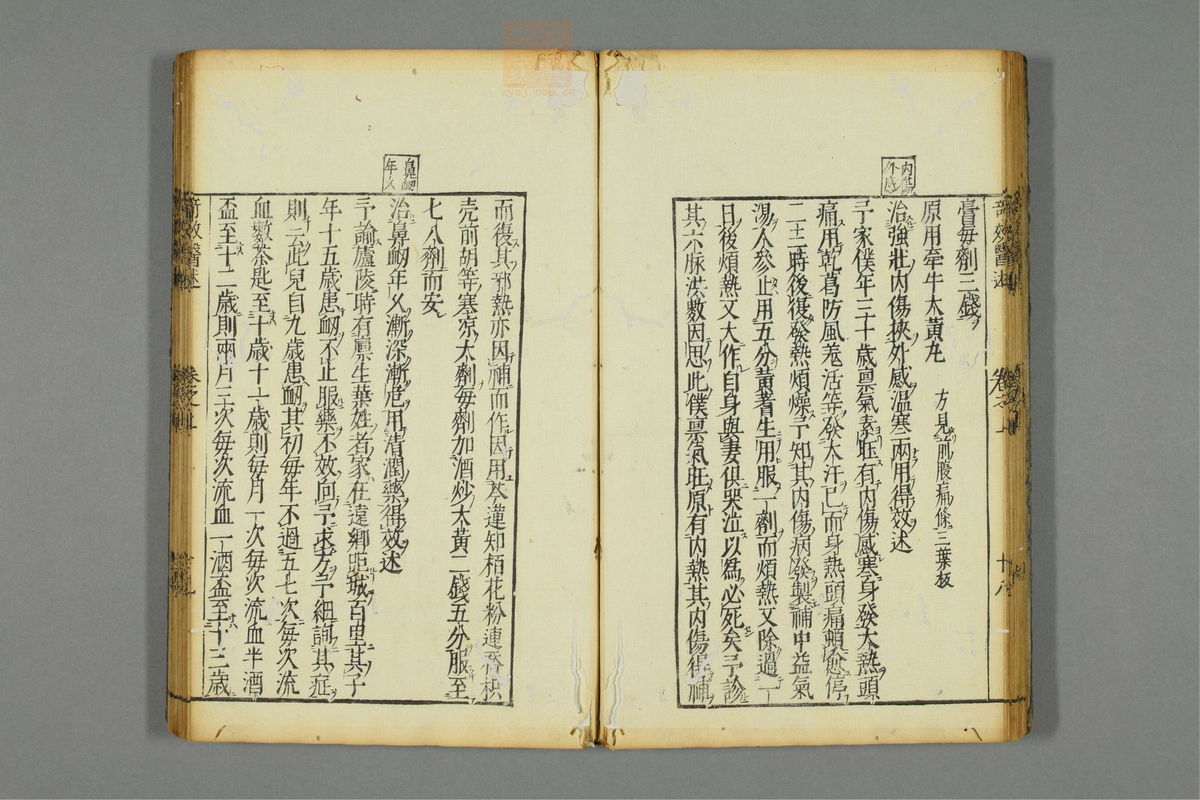 內傷
外感
膏每劑三錢
原用牽牛大黃丸 方見前腹痛條三葉板
治強壯內傷挾外感溫寒兩用得效述
予家僕年三十歲禀氣素旺有內傷感寒身發大熱頭
痛用乾葛防風羗活等發大汗已而身熱頭痛頓愈停
二三時後復發熱煩燥予知其內傷病發製補中益氣
湯人參止用五分黃蓍生用服一劑而煩熱又除過一
日後煩熱又大作自身與妻俱哭泣以為必死矣予診
其六脉洪數因思此僕禀氣旺原有內熱其內傷得補
竒效醫述
卷之上
十八
鼻衂
年久
而復其邪熱亦因補而作因用芩連知栢花粉連翹枳
壳前胡等寒凉大劑每劑加酒炒大黃二錢五分服至
七八劑而安
治鼻衂年久漸深漸危用清潤藥得效述
予諭廬陵時有禀生葉姓者家在遠鄉距城百里其子
年十五歲患衂不止服藥不效向予求方予細詢其症
則云此兒自九歲患衂其初每年不過五七次每次流
血數茶匙至十歲十一歲則每月一次每次流血半酒
盃至十二歲則兩月三次每次流血一酒盃至十三歲
竒效醫述
卷之上